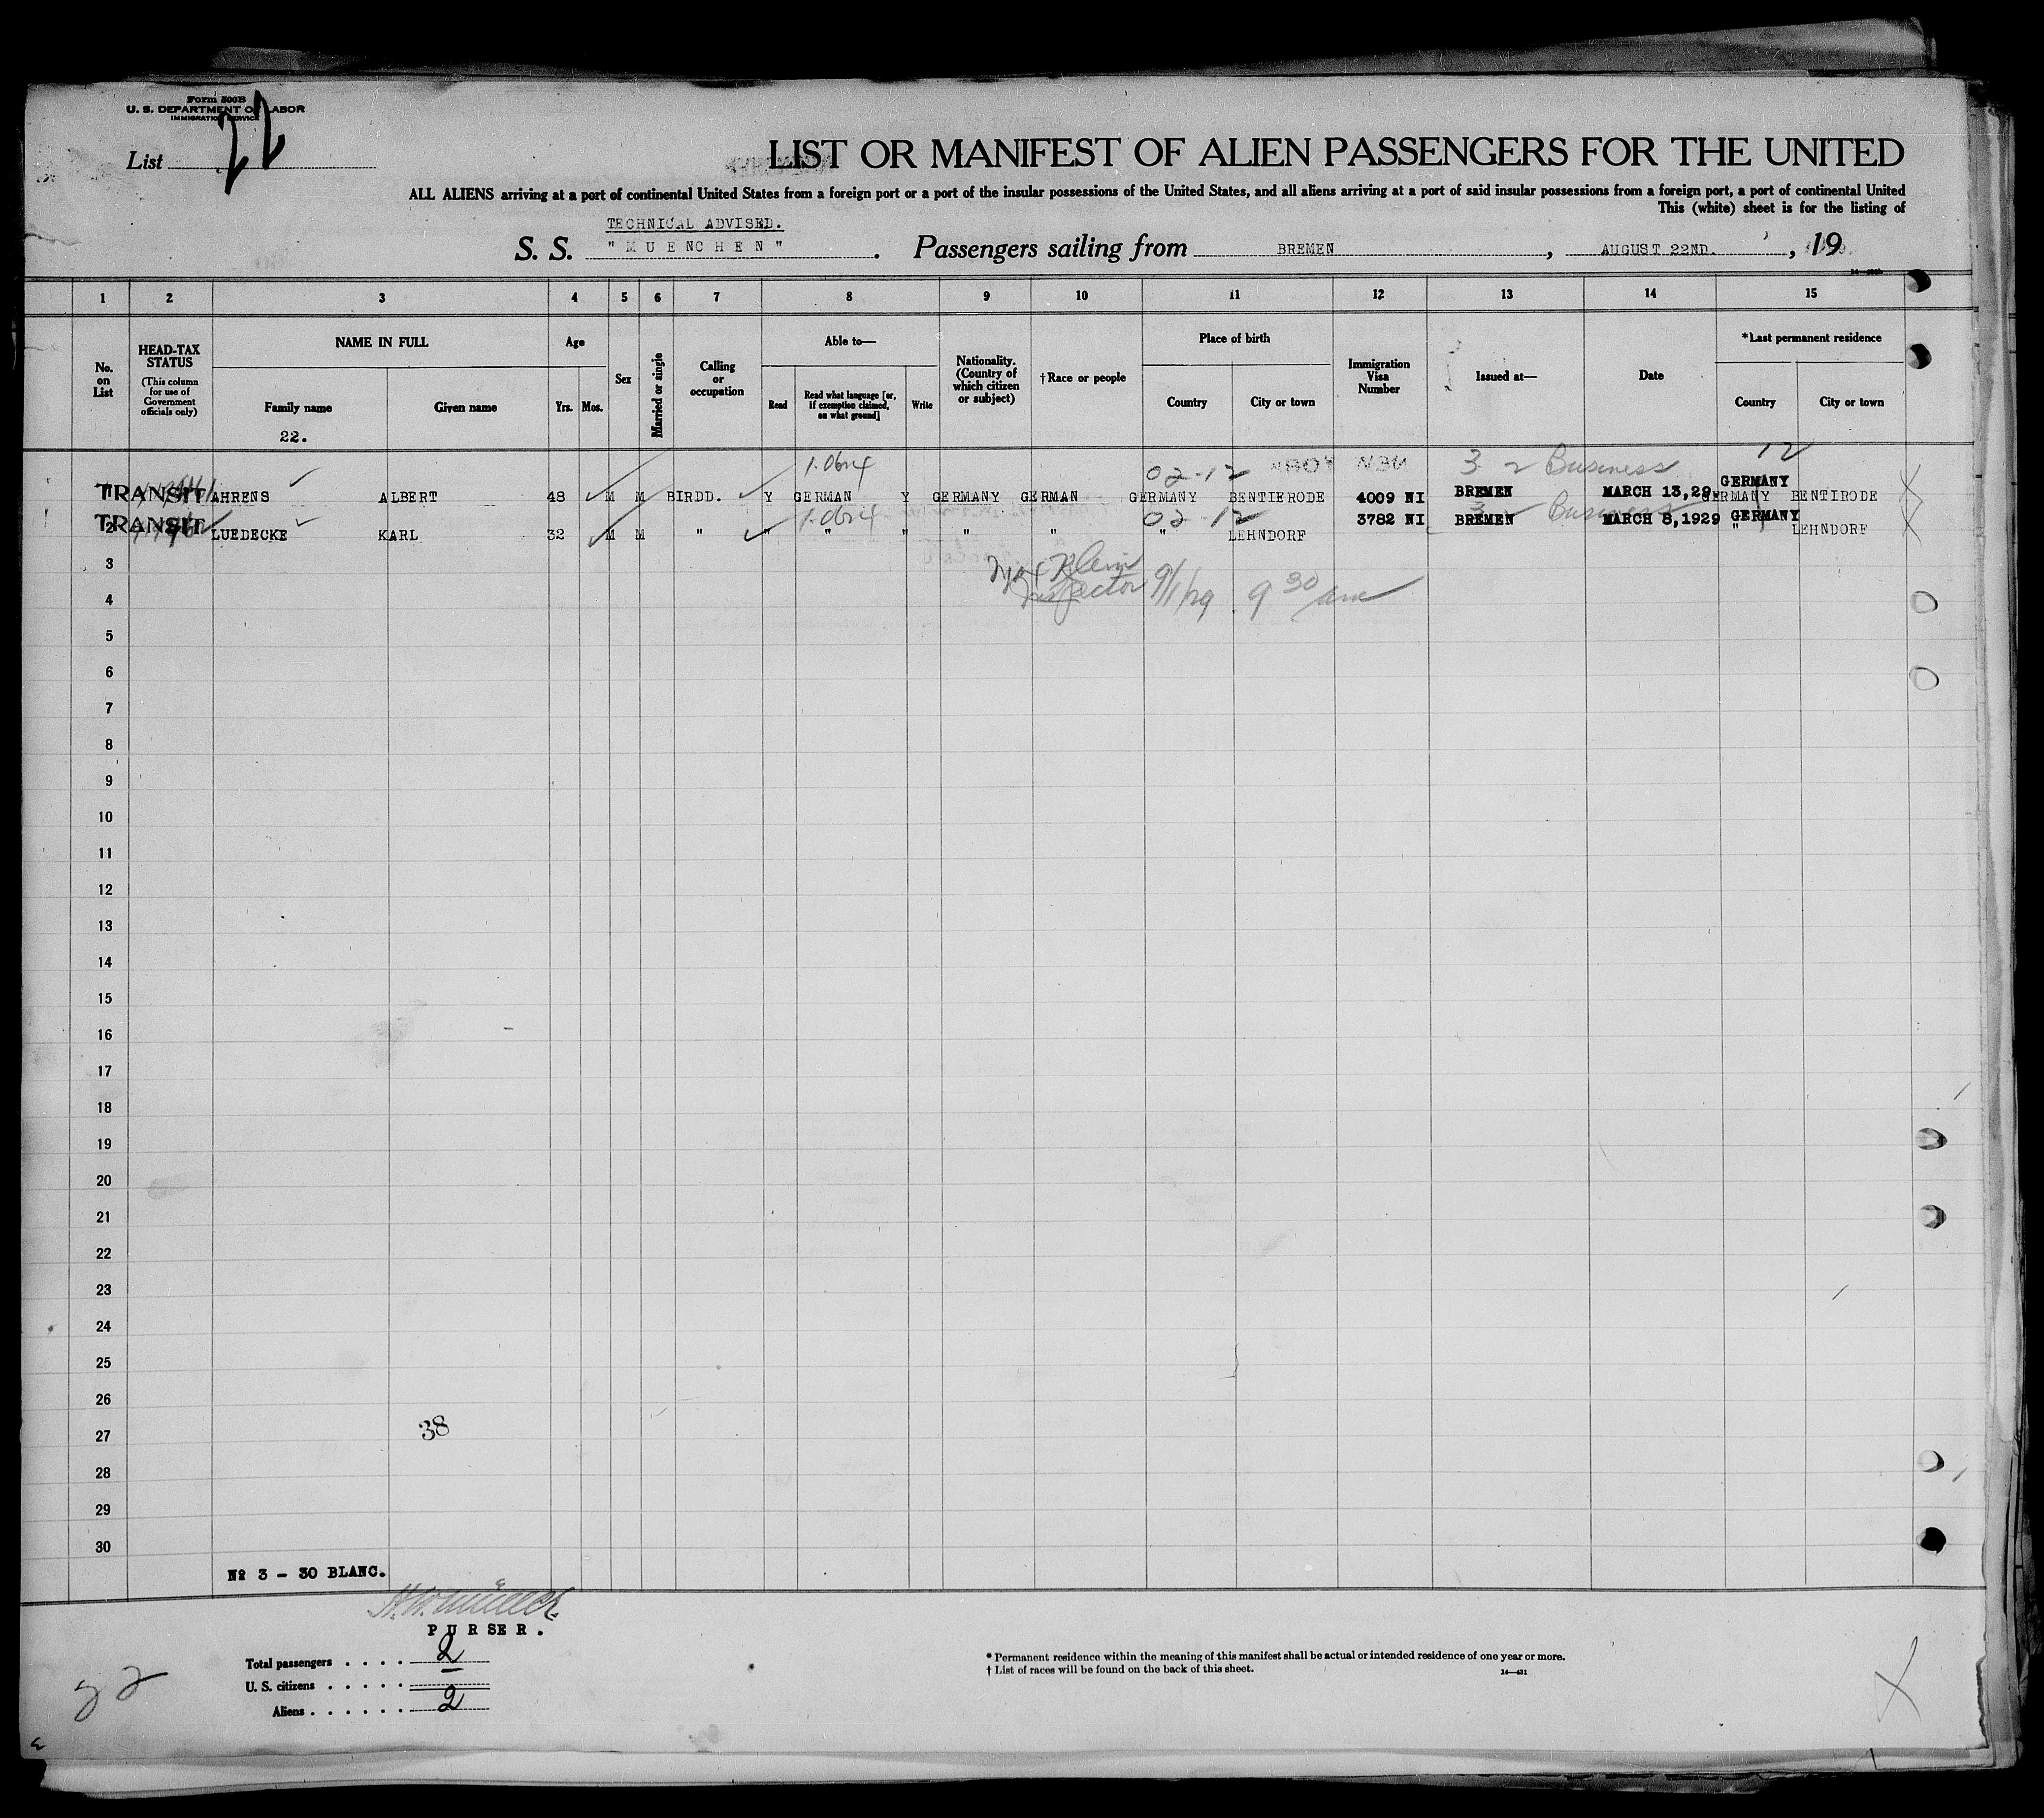 Form 500B
U. S. DEPARTMENT OF LABOR
IMMIGRATION SERVICE
List 22
LIST OR MANIFEST OF ALIEN PASSENGERS FOR THE UNITED
ALL ALIENS arriving at a port of continental United States from a foreign port or a port of the insular possessions of the United States, and all aliens arriving at a port of said insular possessions from a foreign port, a port of continental United
This (white) sheet is for the listing of
TECHNICAL ADVISED.
S. S. "MUENCHEN". Passengers sailing from BREMEN, AUGUST 22ND., 19
1 2 3 4 5 6 7 8 9 10 11 12 13 14 15
No. on List
HEAD-TAX STATUS
(This column for use of Government officials only)
NAME IN FULL
Family name
Given name
22.
Age
Yrs. Mos.
Sex
Married or single
Calling or occupation
Able to—
Read
Read what language [or, if exemption claimed, on what ground]
Write
Nationality. (Country of which citizen or subject)
†Race or people
Place of birth
Country
City or town
Immigration Visa Number
Issued at—
Date
*Last permanent residence
Country
City or town
02-12 NEW YORK 3 Business 12
1 TRANSIT AHRENS ALBERT 48 M M BIRDD. Y GERMAN Y GERMANY GERMAN GERMANY BENTIERODE 4009 NI BREMEN MARCH 13,29. GERMANY GERMANY BENTIRODE
02-12 3 Business
2 TRANSIT LUEDECKE KARL 32 M M " " " " " " " LEHNDORF 3782 NI BREMEN MARCH 8,1929 GERMANY " LEHNDORF
3 Klein
4 Inspector 9/1/29 9 30 am
5
6
7
8
9
10
11
12
13
14
15
16
17
18
19
20
21
22
23
24
25
26
27 38
28
29
30
№ 3 - 30 BLANC.
PURSER.
Total passengers . . . . 2
U. S. citizens . . . . .
Aliens . . . . . . 2
22
* Permanent residence within the meaning of this manifest shall be actual or intended residence of one year or more.
† List of races will be found on the back of this sheet.
14—431